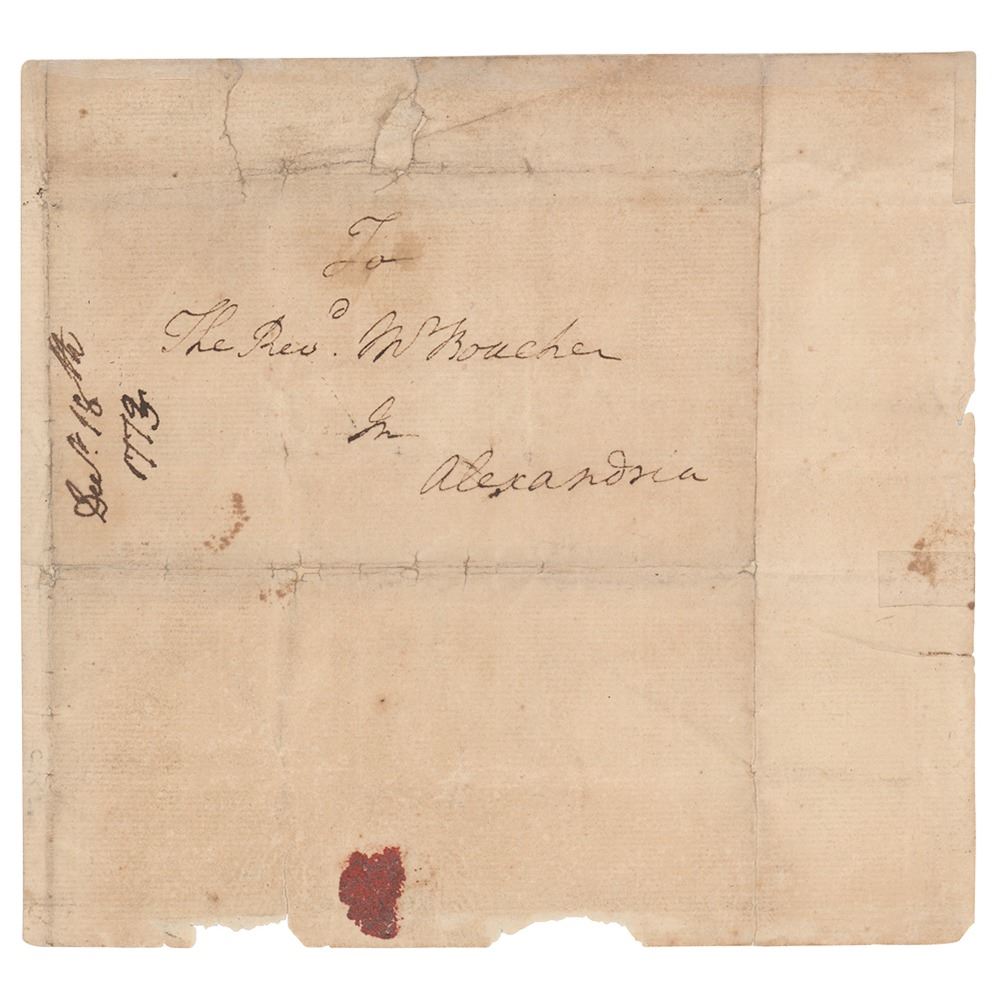 To
The Revd. Mr Boucher
In
Alexandria
Decr. 18th
1773